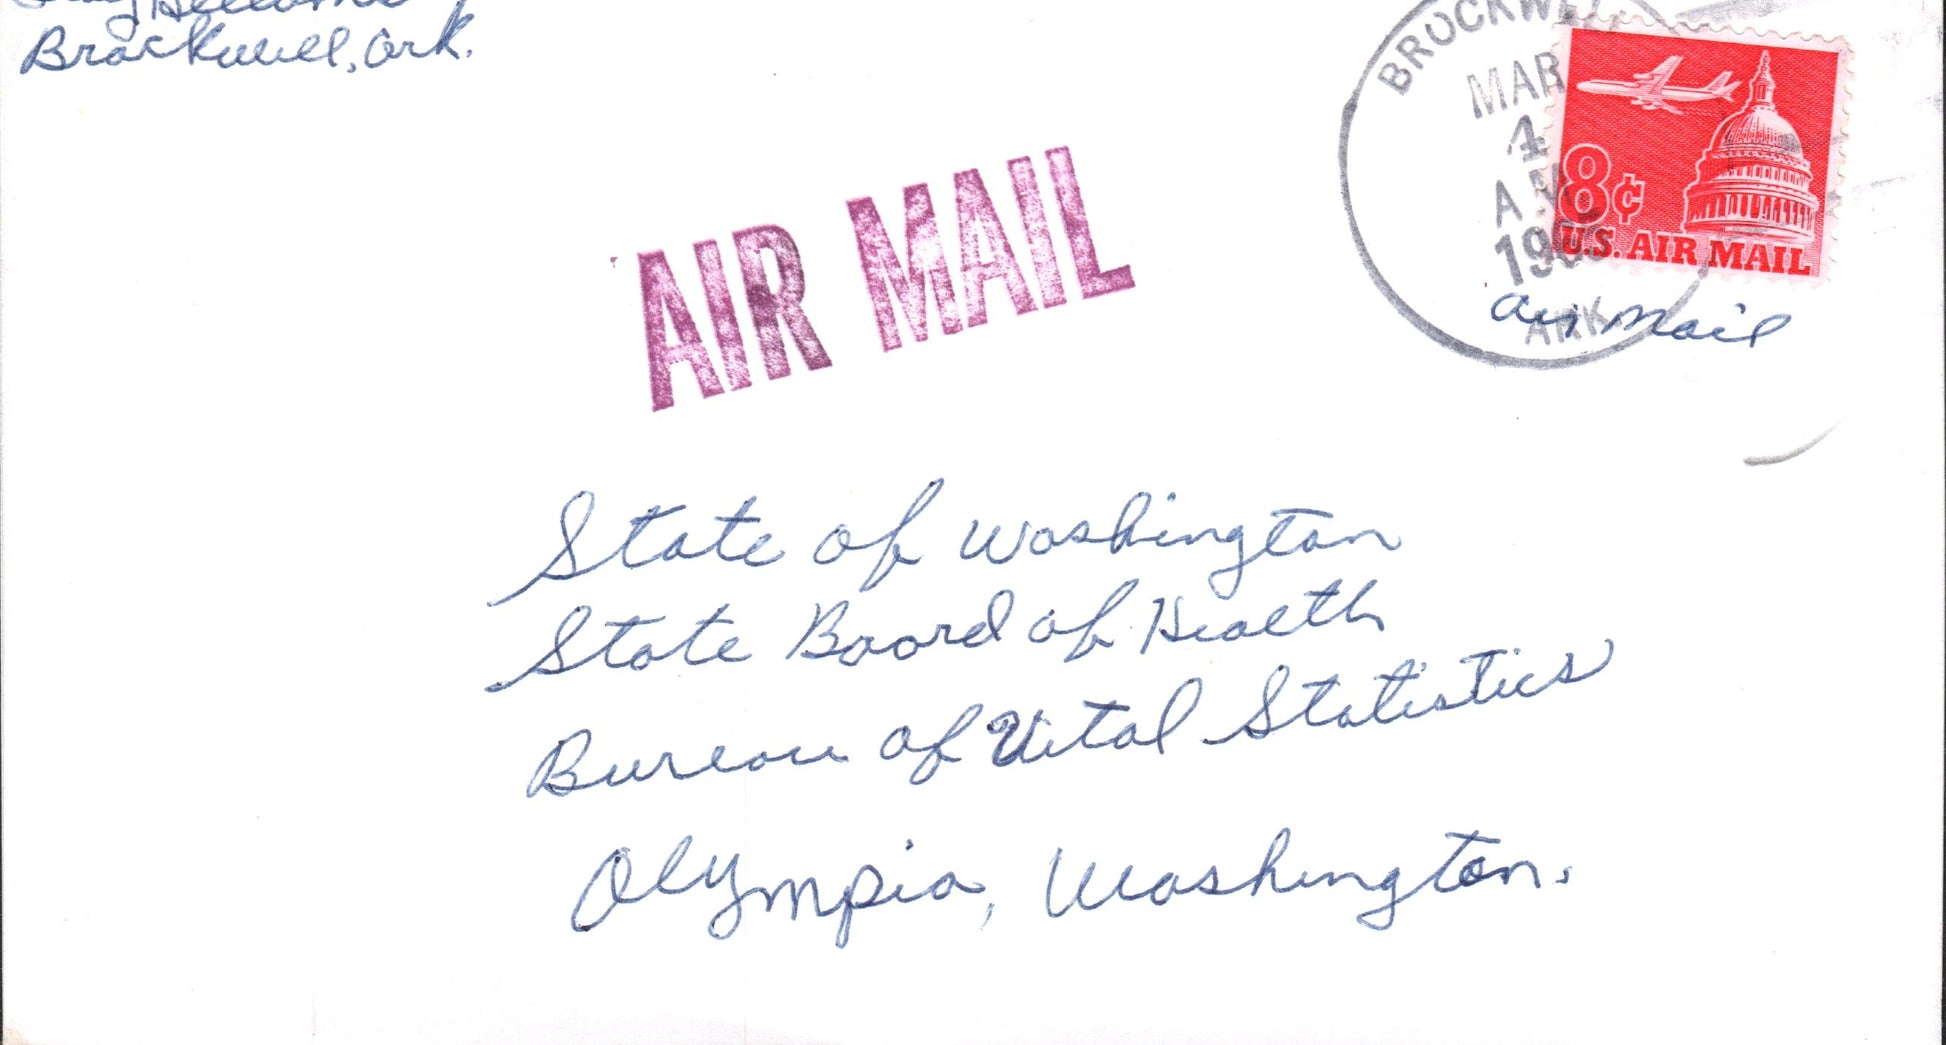 Brockwell, Ark.
BROCKWELL
MAR
4
AM
ARK.
8¢
U.S. AIR MAIL
air mail
AIR MAIL
State of Washington
State Board of Health
Bureau of Vital Statistics
Olympia, Washington.